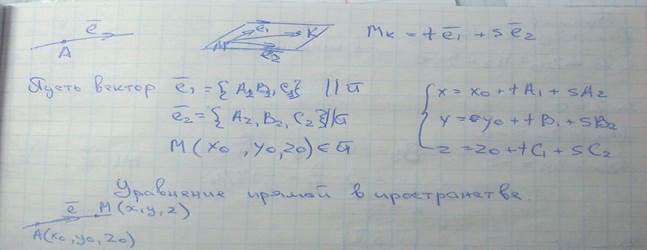 ē
A
ē₁
K
M
ē₂
Mк = tē₁ + sē₂
Пусть вектор ē₁ = {A₂B₂, C₂} || π
ē₂ = {A₂, B₂, C₂} || π
M(x₀, y₀, z₀) ∈ π
x = x₀ + tA₁ + sA₂
y = y₀ + tB₁ + sB₂
z = z₀ + tC₁ + sC₂
Уравнение прямой в пространстве.
ē
M(x, y, z)
A(x₀, y₀, z₀)